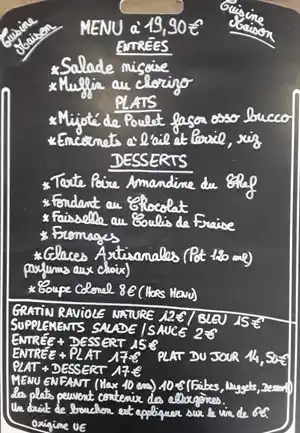 Cuisine Maison
MENU à 19,90€
Cuisine Maison
ENTRÉES
*Salade niçoise
*Muffin au chorizo
PLATS
*Mijoté de Poulet façon osso bucco
*Encornets à l'ail et Persil, riz
DESSERTS
*Tarte Poire Amandine du Chef
*Fondant au Chocolat
*Faisselle au Coulis de Fraise
*Fromages
*Glaces Artisanales (Pot 120 ml)
(parfums aux choix)
*Coupe Colonel 8€ (HORS MENU)
GRATIN RAVIOLE NATURE 12€/ BLEU 15€
SUPPLEMENTS SALADE/SAUCE 2€
ENTRÉE + DESSERT 15€
ENTRÉE + PLAT 17€ PLAT DU JOUR 14,50€
PLAT + DESSERT 17€
MENU ENFANT (Max 10 ans) 10€ (Frites, Nuggets, Dessert)
Les plats peuvent contenir des allergènes.
Un droit de bouchon est appliquer sur le vin de 6€
origine UE